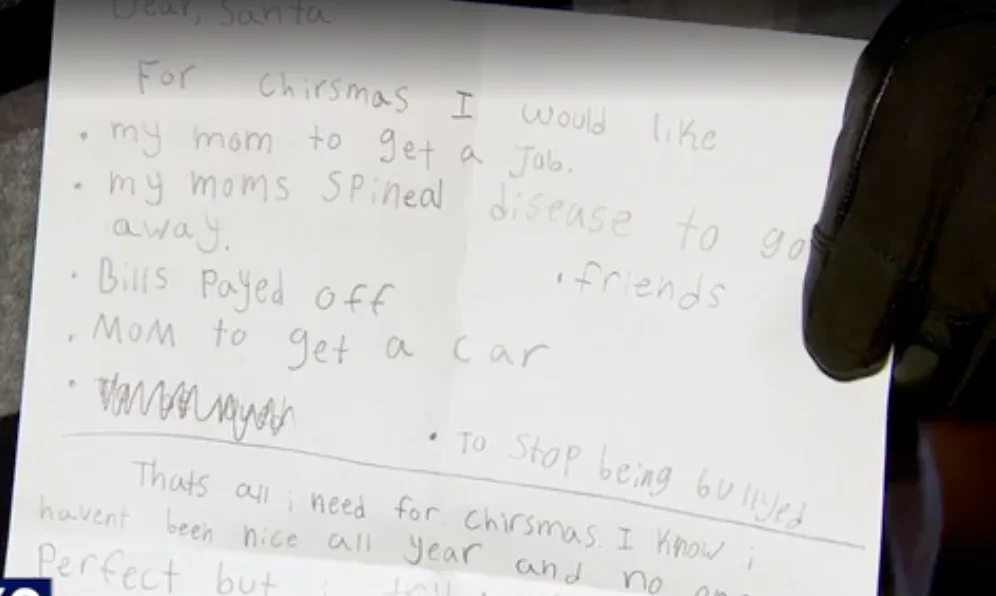 Dear, Santa
For Chirsmas I would like
• my mom to get a Job.
• my moms Spineal disease to go
away.
• friends
• Bills Payed off
• Mom to get a car
• To Stop being bullyed
Thats all i need for chirsmas. I know i
havent been nice all year and no one
Perfect but i